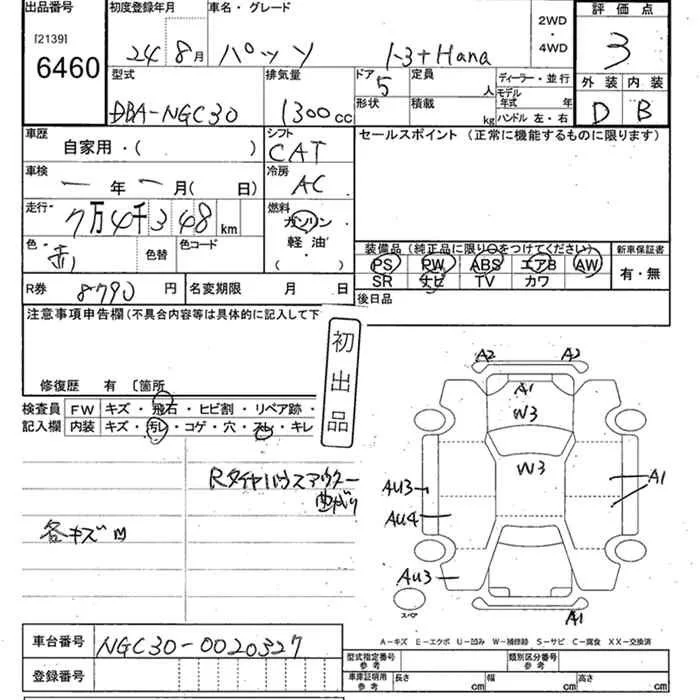 出品番号 初度登録年月 車名・グレード 2WD・4WD 評価点
[2139]
6460 24年8月 パッソ 1-3+Hana 3
型式 排気量 ドア 定員 人 ディーラー・並行 外装 内装
DBA-NGC30 1300cc 5 形状 積載 kg モデル年式 年 ハンドル 左・右 D B
車歴 シフト セールスポイント (正常に機能するものに限ります)
自家用・( ) CAT
車検 冷房
ー年ー月( 日) AC
走行 燃料
7万4千348km ガソリン
軽油・
( )
色・ 赤 色替 色コード
装備品(純正品に限り○をつけてください) 新車保証書
PS PW ABS エアB AW 有・無
SR ナビ TV カワ
R券 8790円 名変期限 月 日 後日品
注意事項申告欄(不具合内容等は具体的に記入して下
初出品
修復歴 有 〔箇所
検査員 FW キズ・飛石・ヒビ割・リペア跡・
記入欄 内装 キズ・汚レ・コゲ・穴・スレ・キレ
Rタイヤハウスアウター
曲がり
各キズ凹
A2 A2
A1
W3
W3
AU3 A1
AU4
AU3
スペア A1
A-キズ E-エクボ U-凹み W-補修跡 S-サビ C-腐食 XX-交換済
車台番号 NGC30-0020327
登録番号
型式指定番号 参考 類別区分番号 参考
車庫証明用 参考 長さ cm 幅 cm 高さ cm